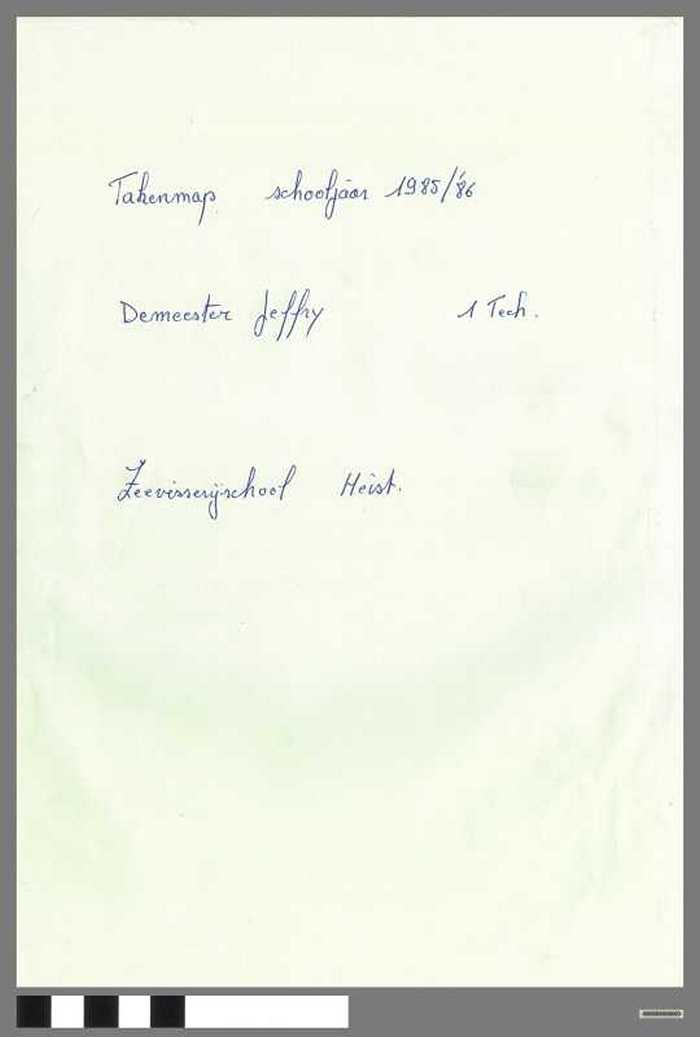 Takenmap schooljaar 1985/'86
Demeester Jeffry 1 Tech.
Zeevisserijschool Heist.